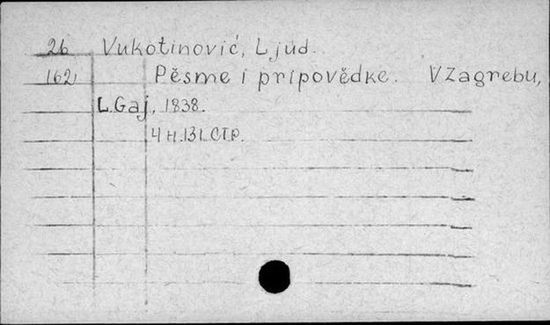 26 Vukotinović, Ljud.
162 Pěsme i pripovědke. V Zagrebu,
L. Gaj, 1838.
4 н. 131. стр.